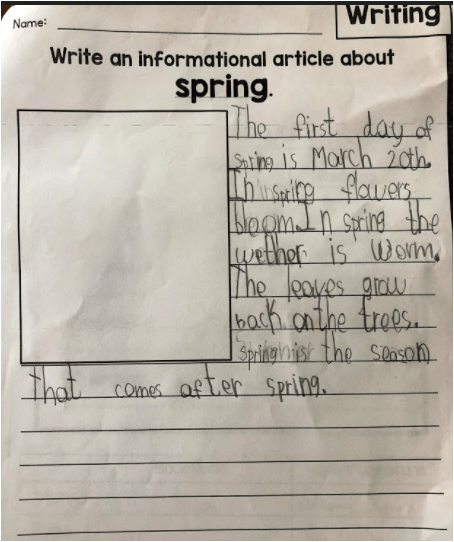 Name:
Writing
Write an informational article about
spring.
The first day of
spring is March 20th.
In spring flowers
bloom. In spring the
wether is worm.
The leaves grow
back on the trees.
the season
that comes after spring.